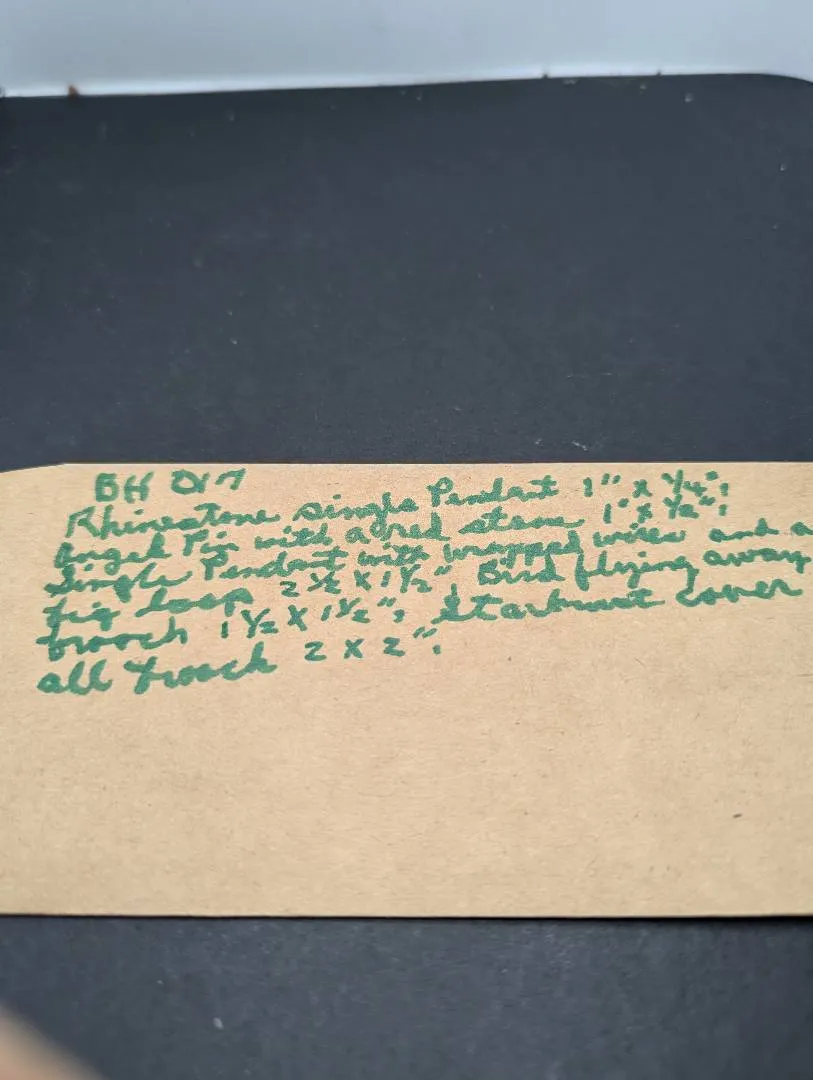 BH 017
Rhinestone single Pendant 1" x 1/4";
Angel Pin with a red stone 1" x 1/2";
single Pendant with wrapped wires and a
big loop 2 1/2 x 1 1/2" Bird flying away
brooch 1 1/2 x 1 1/2"; starburst cover
all brooch 2 x 2";